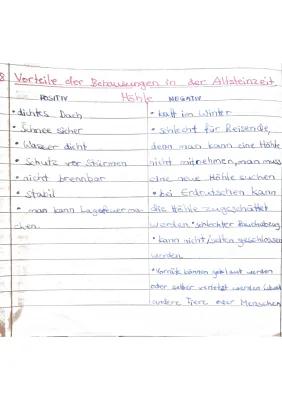 8 Vorteile der Behausungen in der Altsteinzeit
POSITIV Höhle NEGATIV
• dichtes Dach • kalt im Winter
• Schnee sicher • schlecht für Reisende,
• Wasser dicht denn man kann eine Höhle
• Schutz vor Stürmen nicht mitnehmen, man muss
• nicht brennbar eine neue Höhle suchen
• Stabil • bei Erdrutschen kann
• man kann Lagefeuer ma die Höhle zugeschüttet
chen. werden • schlechter Rauchabzug
• kann nicht/selten geschlossen
werden
• Vorräte können geklaut werden
oder selber verletzt werden
andere Tiere oder Menschen